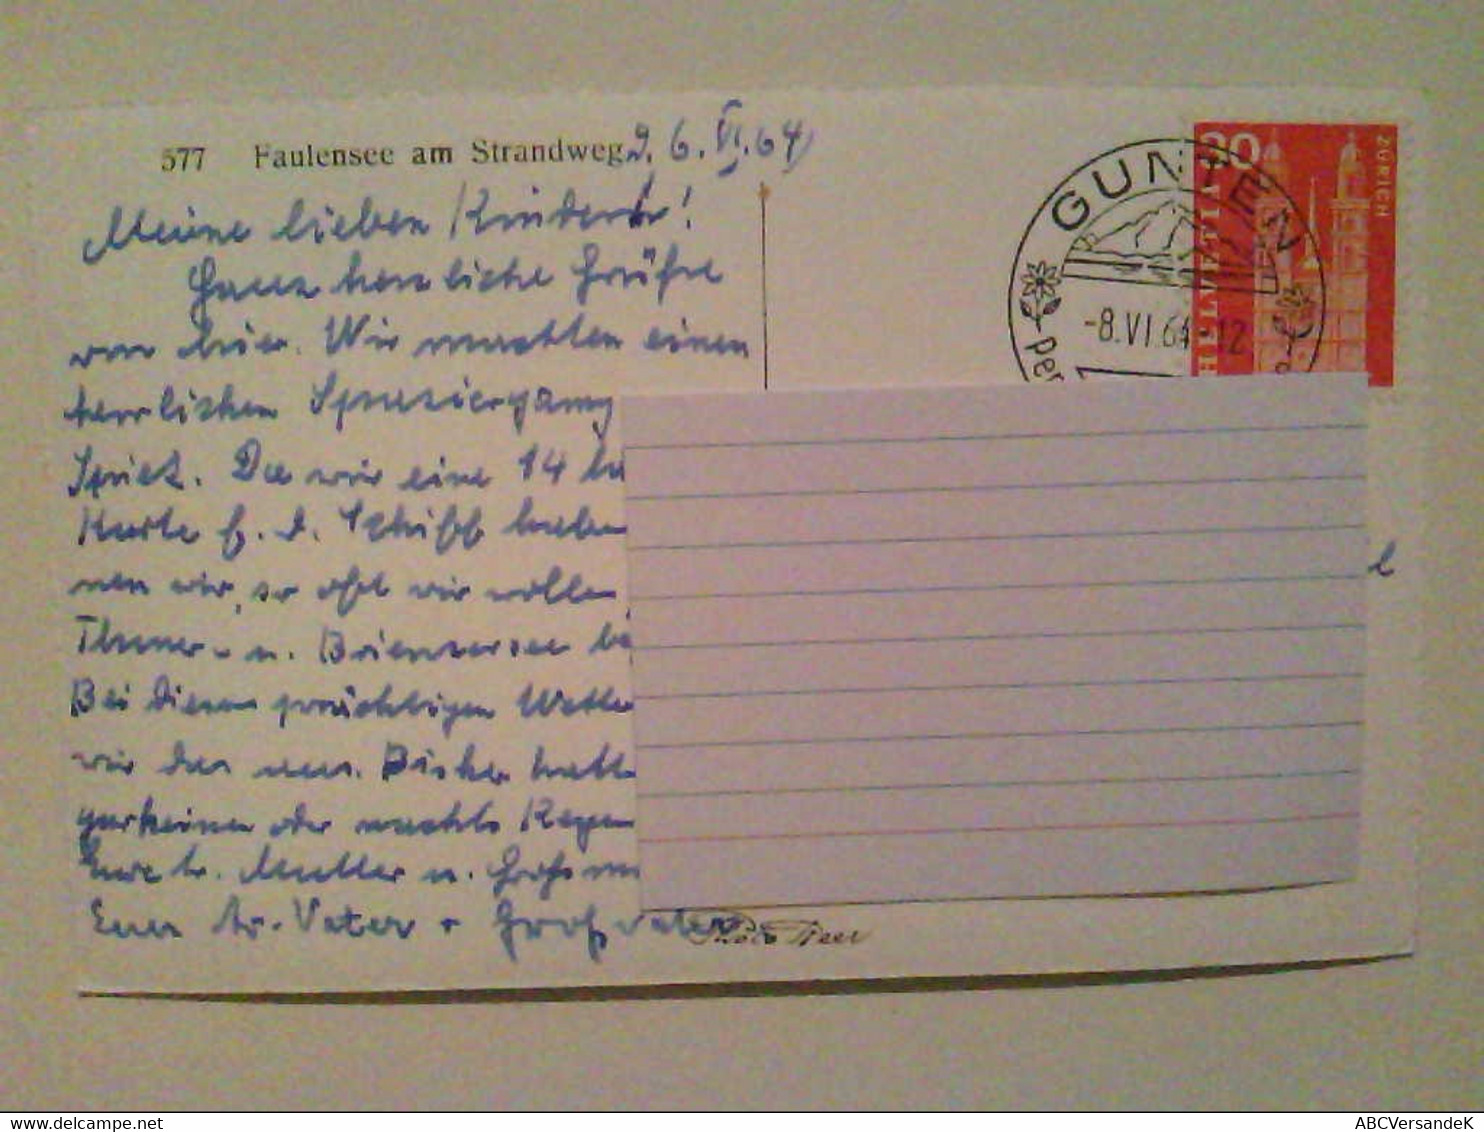 577 Faulensee am Strandweg, 6.VI.64
Meine lieben Kinder!
Ganz herzliche Grüße
von hier. Wir machten einen
herrlichen Spaziergang
Spiez. Da wir eine 14
Karte f. d. Schiff haben
nen wir, so oft wir wollen,
Thuner- u. Brienzersee
Bei diesem prächtigen Wetter
wir das nur. Bisher hatt
garkeinen oder nachts Regen
Eure tr. Mutter u. Groß
Euer tr. Vater + Großvater
Photo Beer
GUNTEN
-8.VI.64-12
per
20
HELVETIA
ZÜRICH
ABCVersandeK